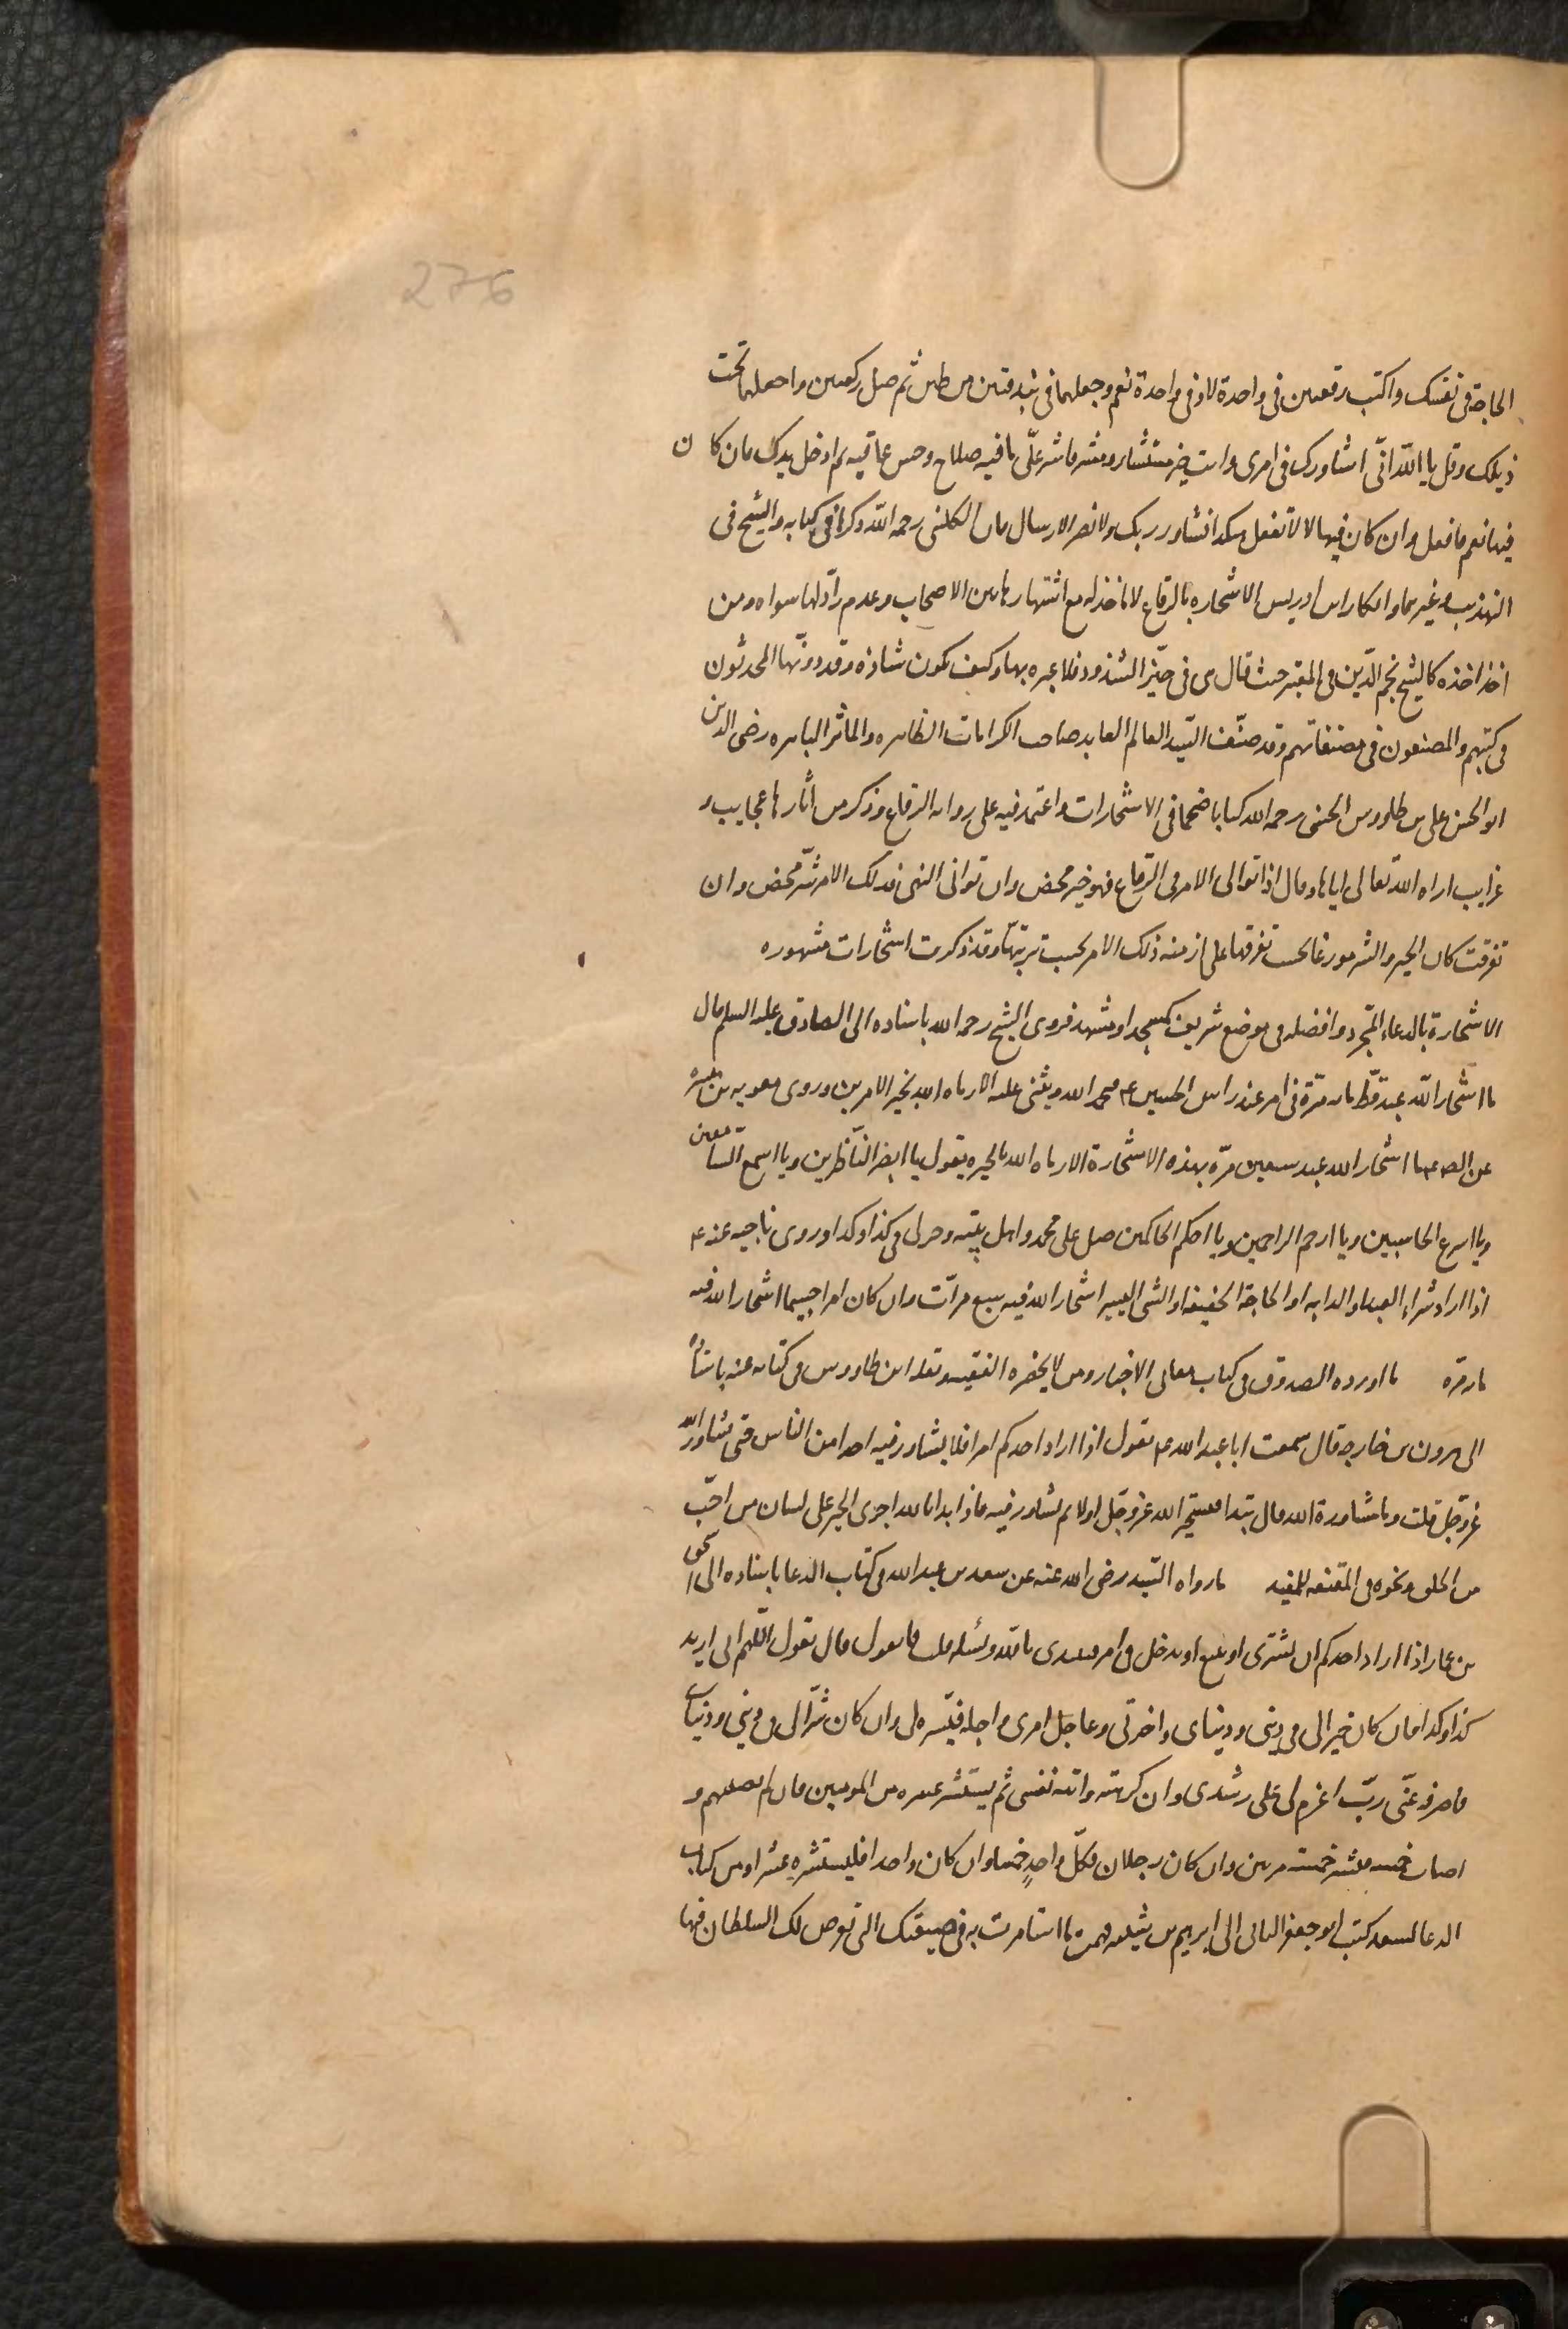 276
الحاجة فى نفسك واكتب رقعتين فى واحدة لا وفى واحدة نعم وجعلهما فى بندقتين من طين ثم صل ركعتين واجعلهما تحت
ذيلك وقل يا اللّه انّى اشاورك فى امرى وانت خير مستشار ومشير فاشر علّى بما فيه صلاح وحسن عاقبه ثم ادخل يدك فان كان
فيها نعم فافعل وان كان فيها لا لا تفعل هكذا تشاور ربك ولا نضر الارسال فان الكلينى رحمه اللّه ذكرها فى كتابه والشيخ فى
التهذيب وغيرهما وانكار ابن ادريس الاستخاره بالرقاع لا ماخذ له مع اشتهارها بين الاصحاب وعدم رادّ لها سواه ومن
اخذ اخذه كالشيخ نجم الدّين فى المعتبر حيث قال هى فى حيّز الشذوذ فلا عبره بها وكيف تكون شاذه وقد دونّها المحدثون
فى كتبهم والمصنفون فى مصنفاتهم وقد صنّف السّيد العالم العابد صاحب الكرامات الظاهره والماثر الباهره رضى الدين
ابو الحسن على بن طاووس الحسنى رحمه الله كتابا ضخما فى الاستخارات واعتمد فيه على روايه الرقاع وذكر من اثارها عجايب و
غرايب اراه اللّه تعالى اياها وقال اذا توالى الامر فى الرّقاع فهو خير محض وان توالى النهى فذلك الامر شرّ محض وان
تفرقت كان الخير والشر موزعا بحسب تفرقها على ازمنه ذلك الامر بحسب ترتبها وقد ذكرت استخارات مشهوره
الاستخارة بالدعاء المجّرد وافضله فى موضع شريف كمسجد او مشهد فروى الشيخ رحمه الله باسناده الى الصادق عليه السلم قال
ما استخار اللّه عبد قطّ مايه مرّة فى امر عند راس الحسين ع فيحمد الله ويثنى عليه الا رماه الله بخير الامرين وروى معويه بن ميسره
عن الص ع ما استخار الله عبد سبعين مرّه بهذه الاستخارة الا رماه الله بالخيره يقول يا ابصر النّاظرين ويا اسمع السّامعين
ويا اسرع الحاسبين ويا ارحم الراحمين ويا احكم الحاكمين صل على محمد واهل بيته وخر لى فى كذا وكذا وروى ناجيه عنه ع
اذا اراد شراء العبد او الدابه او الحاجة الخفيفه او الشى اليسير استخار الله فيه سبع مرات وان كان امرا جسيما استخار الله فيه
مايه مرّه ما اورده الصدوق فى كتاب معانى الاخبار ومن لا يحضره الفقيه ونقله ابن طاووس فى كتابه عنه باسناده
الى هرون بن خارجه قال سمعت ابا عبد الله ع يقول اذا اراد احدكم امرا فلا يشاور فيه احدا من الناس حتى يشاور الله
عزّ وجلّ قلت وما مشاورة الله قال يبتدا فيستخير الله عز وجل اولا ثم يشاور فيه فاذا بدا بالله اجرى الخير على لسان من احبّ
من الخلق ونحوه فى المقنعه للمفيد ما رواه السّيد رضى الله عنه عن سعد بن عبد الله فى كتاب الدعا باسناده الى اسحق
بن عمار اذا اراد احدكم ان يشترى او يبيع او يدخل فى امر فيبتدى بالله ويسئله قلت فما يقول قال يقول اللّهم انى اريد
كذا وكذا فان كان خيرا لى فى دينى ودنياى واخرتى وعاجل امرى واجله فيسّره لى وان كان شرّا لى فى دينى ودنياى
فاصرفه عنّى ربّ اعزم لى على رشدى وان كرهته وابته نفسى ثم يستشير عشره من المومنين فان لم يصبهم و
اصاب خمسه فليستشر خمسه مرتين وان كان رجلان فكلّ واحدٍ خمسا وان كان واحدا فليستشره عشرا ومن كتاب
الدعا لسعد كتب ابو جعفر الثانى الى ابرهيم بن شيبه فهمت ما استامرت به فى ضيعتك التى تعرض لك السلطان فيها